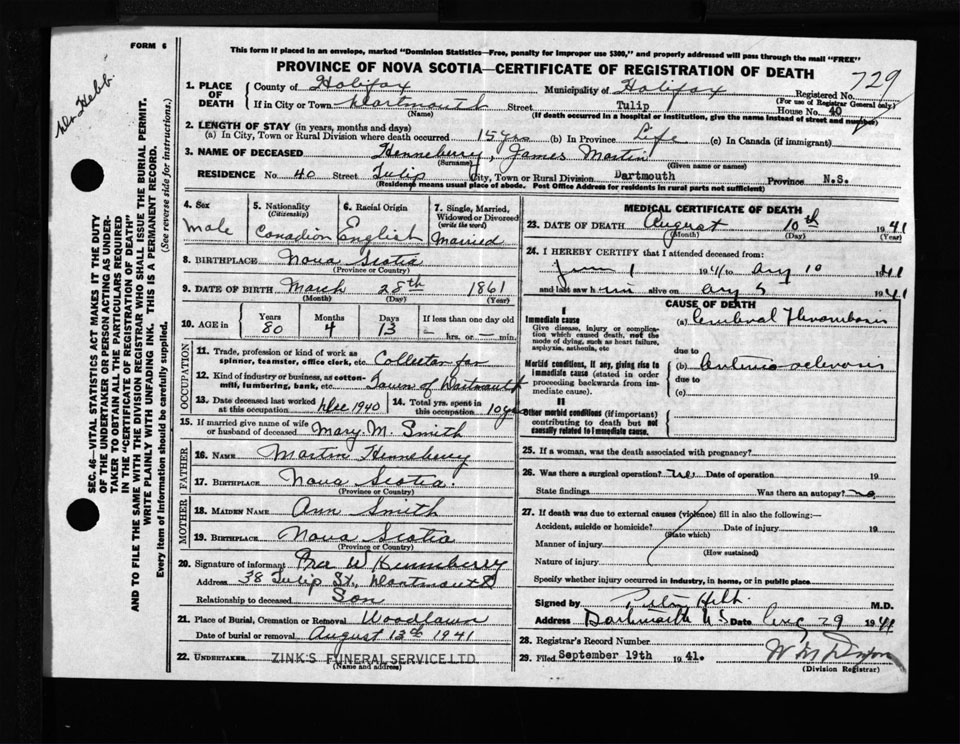 FORM 6
This form if placed in an envelope, marked "Dominion Statistics—Free, penalty for improper use $300," and properly addressed will pass through the mail "FREE"
PROVINCE OF NOVA SCOTIA—CERTIFICATE OF REGISTRATION OF DEATH
729
Dr. Hebb.
1. PLACE OF DEATH
County of Halifax Municipality of Halifax Registered No.
(For use of Registrar General only)
If in City or Town Dartmouth Street Tulip House No. 40
(Name) (If death occurred in a hospital or institution, give the name instead of street and number)
2. LENGTH OF STAY (in years, months and days)
(a) In City, Town or Rural Division where death occurred 15 yrs (b) In Province Life (c) In Canada (if immigrant)
3. NAME OF DECEASED Henneberry, James Martin
(Surname) (Given name or names)
RESIDENCE No. 40 Street Tulip City, Town or Rural Division Dartmouth Province N.S.
(Residence means usual place of abode. Post Office Address for residents in rural parts not sufficient)
4. Sex
Male
5. Nationality
(Citizenship)
Canadian
6. Racial Origin
English
7. Single, Married, Widowed or Divorced
(write the word)
Married
8. BIRTHPLACE Nova Scotia
(Province or Country)
9. DATE OF BIRTH March 28th 1861
(Month) (Day) (Year)
10. AGE in Years Months Days If less than one day old
80 4 13 — hrs. or — min.
OCCUPATION
11. Trade, profession or kind of work as spinner, teamster, office clerk, etc. Collector for
12. Kind of industry or business, as cotton-mill, lumbering, bank, etc. Town of Dartmouth
13. Date deceased last worked at this occupation Dec 1940
14. Total yrs. spent in this occupation 10 yrs
15. If married give name of wife or husband of deceased Mary M. Smith
FATHER
16. NAME Martin Henneberry
17. BIRTHPLACE Nova Scotia.
(Province or Country)
MOTHER
18. MAIDEN NAME Ann Smith
19. BIRTHPLACE Nova Scotia
(Province or Country)
20. Signature of informant W Henneberry
Address 38 Tulip St., Dartmouth
Relationship to deceased Son
21. Place of Burial, Cremation or Removal Woodlawn
Date of burial or removal August 13th 1941
22. UNDERTAKER ZINK'S FUNERAL SERVICE LTD.
(Name and address)
MEDICAL CERTIFICATE OF DEATH
23. DATE OF DEATH August 10th 1941
(Month) (Day) (Year)
24. I HEREBY CERTIFY that I attended deceased from:
June 1 1941 to Aug 10 1941
and last saw him alive on Aug 5 1941
CAUSE OF DEATH
I
Immediate cause
Give disease, injury or complication which caused death, not the mode of dying, such as heart failure, asphyxia, asthenia, etc
(a) Cerebral Thrombosis
due to
Morbid conditions, if any, giving rise to immediate cause (stated in order proceeding backwards from immediate cause).
(b) Arterio sclerosis
due to
(c)
II
Other morbid conditions (if important) contributing to death but not causally related to immediate cause.
25. If a woman, was the death associated with pregnancy?
26. Was there a surgical operation? no Date of operation 19
State findings Was there an autopsy? no
27. If death was due to external causes (violence) fill in also the following:
Accident, suicide or homicide? Date of injury 19
(State which)
Manner of injury
(How sustained)
Nature of injury
Specify whether injury occurred in industry, in home, or in public place
Signed by Hebb M.D.
Address Dartmouth N.S. Date Aug 29 1941
28. Registrar's Record Number
29. Filed September 19th 1941.
(Division Registrar)
SEC. 46—VITAL STATISTICS ACT MAKES IT THE DUTY OF THE UNDERTAKER OR PERSON ACTING AS UNDERTAKER TO OBTAIN ALL THE PARTICULARS REQUIRED IN THE "CERTIFICATE OF REGISTRATION OF DEATH" AND TO FILE THE SAME WITH THE DIVISION REGISTRAR WHO SHALL ISSUE THE BURIAL PERMIT.
WRITE PLAINLY WITH UNFADING INK. THIS IS A PERMANENT RECORD.
Every item of information should be carefully supplied. (See reverse side for instructions.)